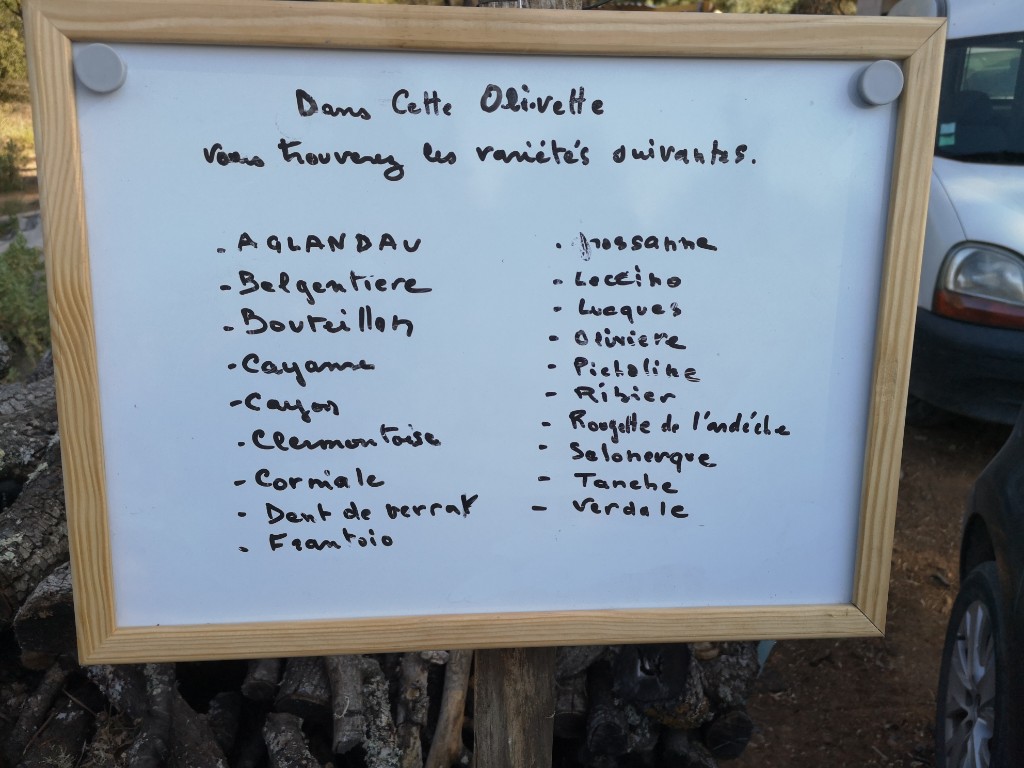 Dans Cette Olivette
vous trouverez les variétés suivantes.
- AGLANDAU
- Belgentiere
- Bouteillan
- Cayanne
- Cayon
- Clermontoise
- Corniale
- Dent de verrat
- Frantoio
- Grossanne
- Leccino
- Lucques
- Oliviere
- Picholine
- Ribier
- Rougette de l'ardèche
- Salonenque
- Tanche
- Verdale